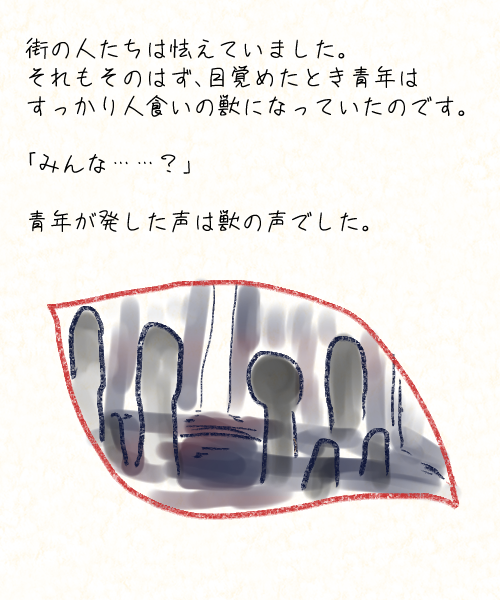 街の人たちは怯えていました。
それもそのはず、目覚めたとき青年は
すっかり人食いの獣になっていたのです。
「みんな……？」
青年が発した声は獣の声でした。